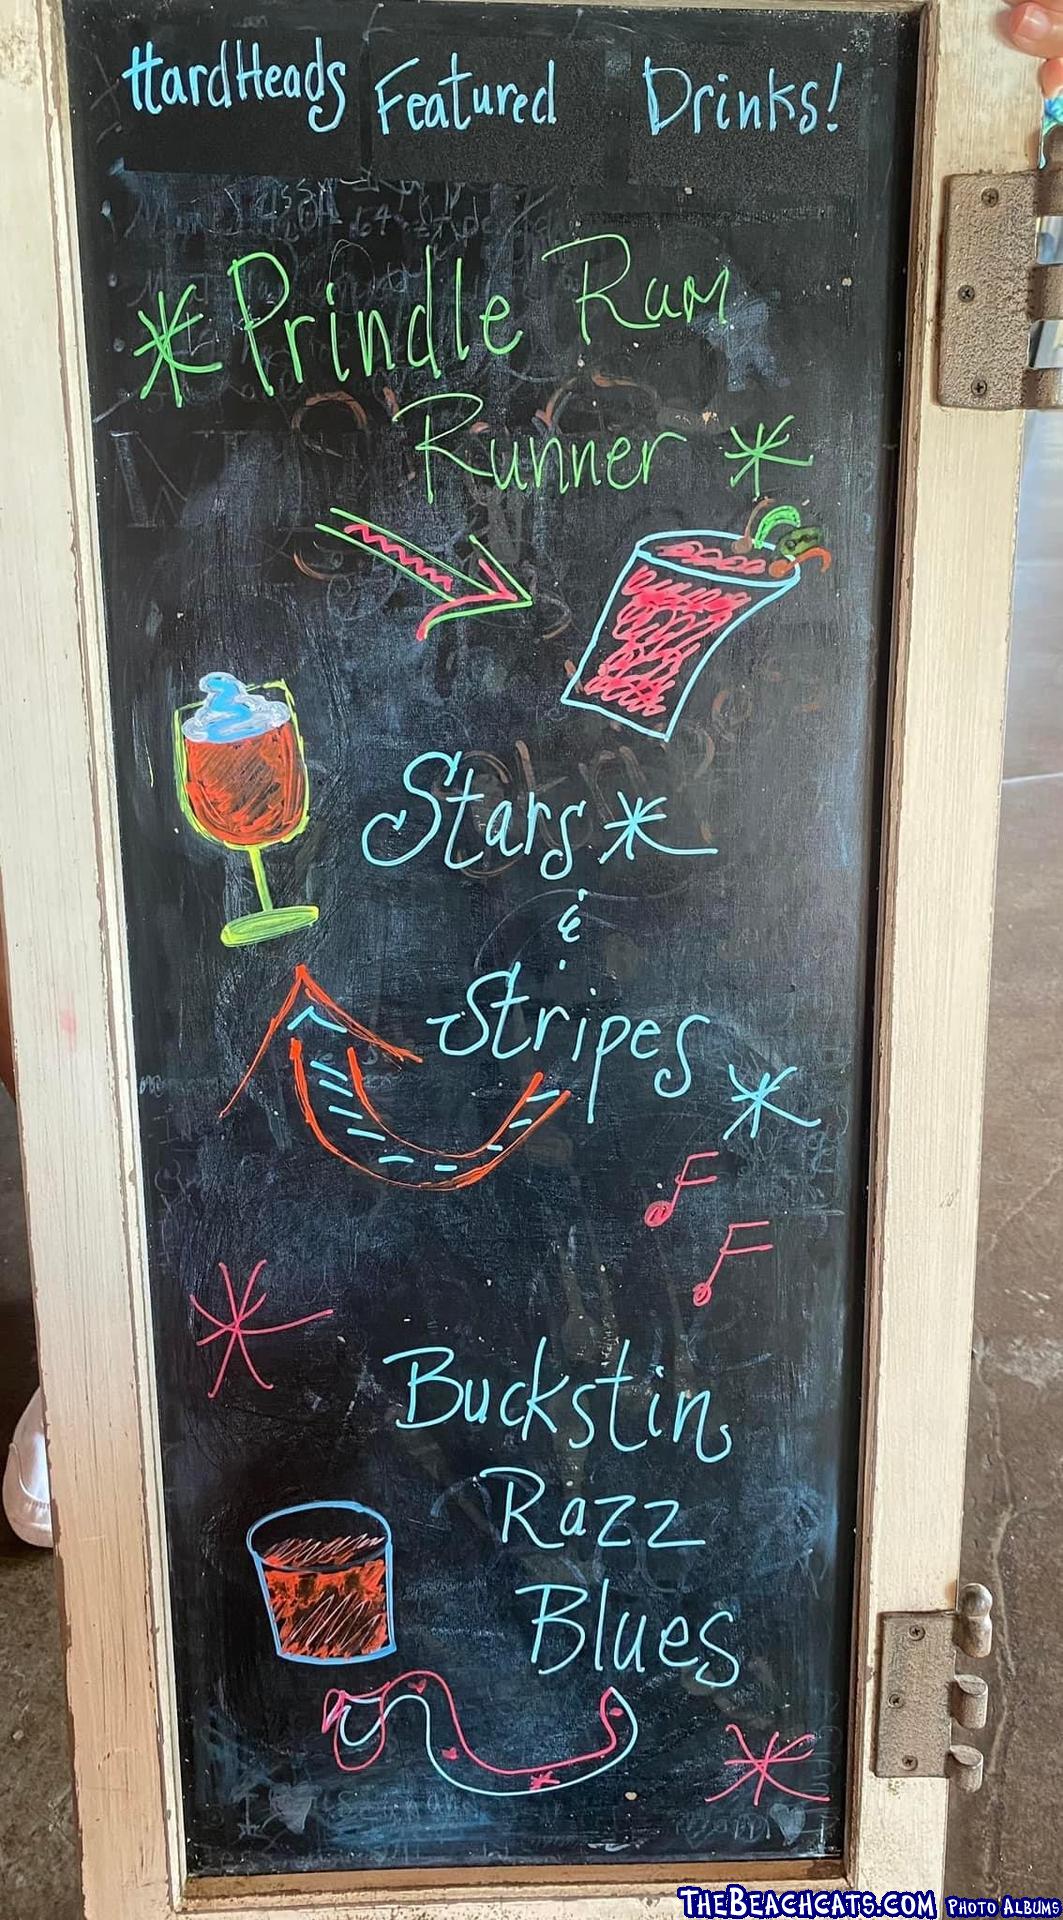 HardHeads Featured Drinks!
Prindle Rum
Runner
Stars
&
Stripes
Buckstin
Razz
Blues
TheBeachcats.com Photo Albums